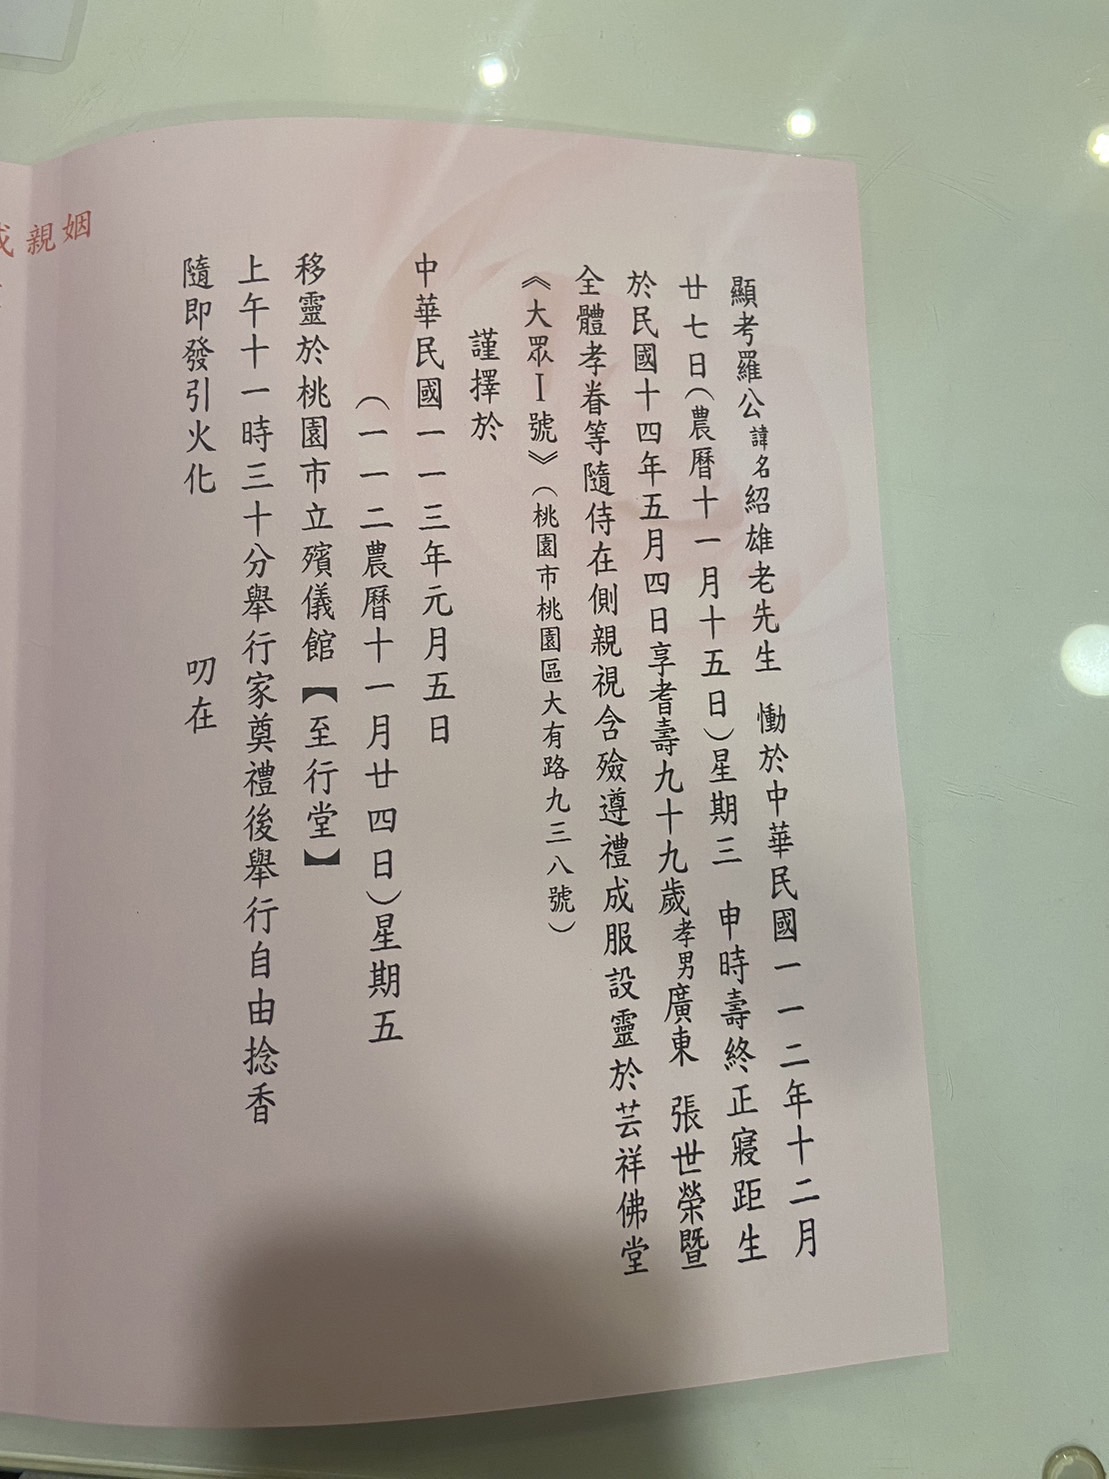 顯考羅公諱名紹雄老先生 慟於中華民國一一二年十二月
廿七日(農曆十一月十五日)星期三 申時壽終正寢距生
於民國十四年五月四日享耆壽九十九歲孝男廣東 張世榮暨
全體孝眷等隨侍在側親視含殮遵禮成服設靈於芸祥佛堂
《大眾I號》(桃園市桃園區大有路九三八號)
謹擇於
中華民國一一三年元月五日
(一一二農曆十一月廿四日)星期五
移靈於桃園市立殯儀館【至行堂】
上午十一時三十分舉行家奠禮後舉行自由捻香
隨即發引火化 叨在
姻親